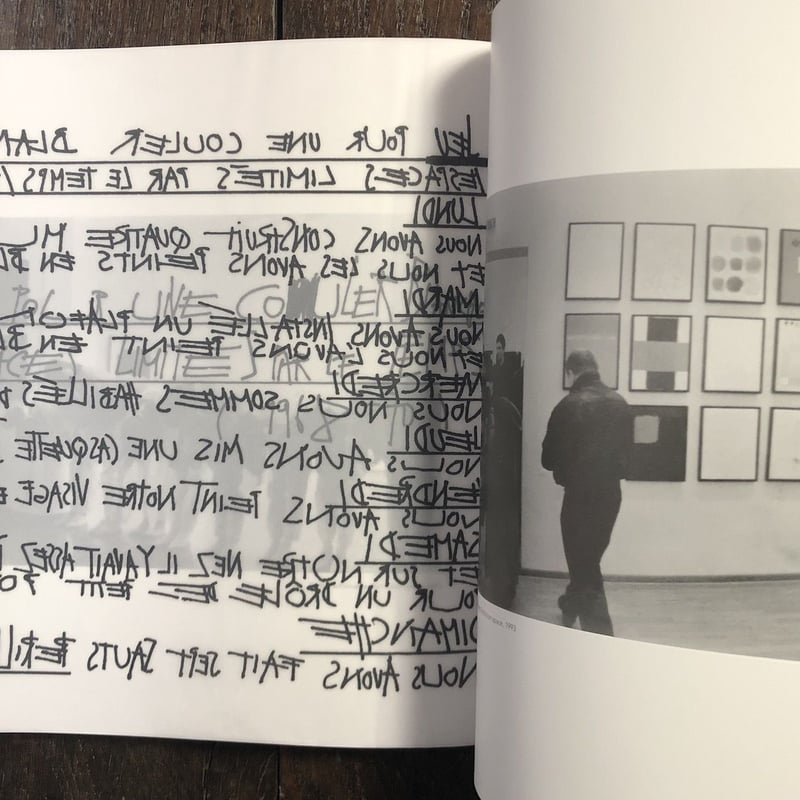 JEU POUR UNE COULER BLAN
ESPACES LIMITEÉS PAR LE TEMPS
LUNDI
NOUS AVONS CONSTRUIT QUATRE
ET NOUS LES AVONS PEINTS EN BL
MARDI
NOUS AVONS INSTALLÉE UN PLAFO
ET NOUS L'AVONS PEINT EN BL
MERCREDI
NOUS NOUS SOMMES HABILLÉS
JEUDI
NOUS AVONS MIS UNE CASQUETTE
VENDREDI
NOUS AVONS PEINT NOTRE VISAGE
SAMEDI
ET SUR NOTRE NEZ IL Y AVAIT ASSEZ
POUR UN DRÔLE DE PETIT PO
DIMANCHE
NOUS AVONS FAIT SEPT SAUTS PÉRIL
1993